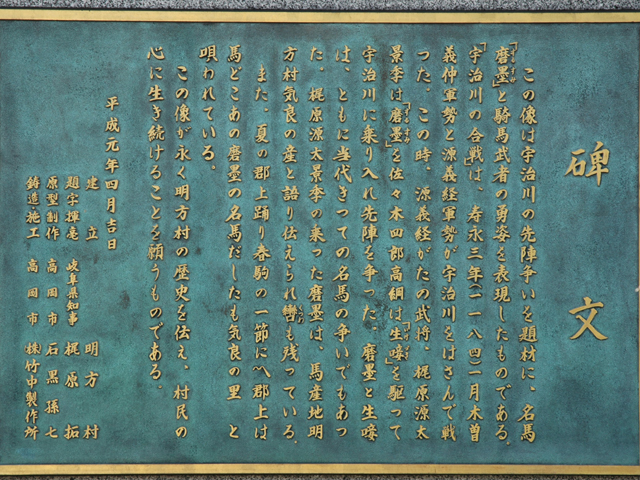 碑文
この像は宇治川の先陣争いを題材に、名馬
「磨墨」と騎馬武者の勇姿を表現したものである。
「宇治川の合戦」は、寿永三年(一一八四)一月木曽
義仲軍勢と源義経軍勢が宇治川をはさんで戦
った。この時、源義経がたの武将、梶原源太
景季は「磨墨」を佐々木四郎高綱は「生唼」を駆って
宇治川に乗り入れ先陣を争った。磨墨と生唼
は、ともに当代きっての名馬の争いでもあっ
た。梶原源太景季の乗った磨墨は、馬産地明
方村気良の産と語り伝えられ轡も残っている。
また、夏の郡上踊り春駒の一節に〽郡上は
馬どこあの磨墨の名馬だしたも気良の里 と
唄われている。
この像が永く明方村の歴史を伝え、村民の
心に生き続けることを願うものである。
平成元年四月吉日
建立 明方村
題字揮毫 岐阜県知事 梶原拓
原型制作 高岡市 石黒孫七
鋳造・施工 高岡市 株竹中製作所